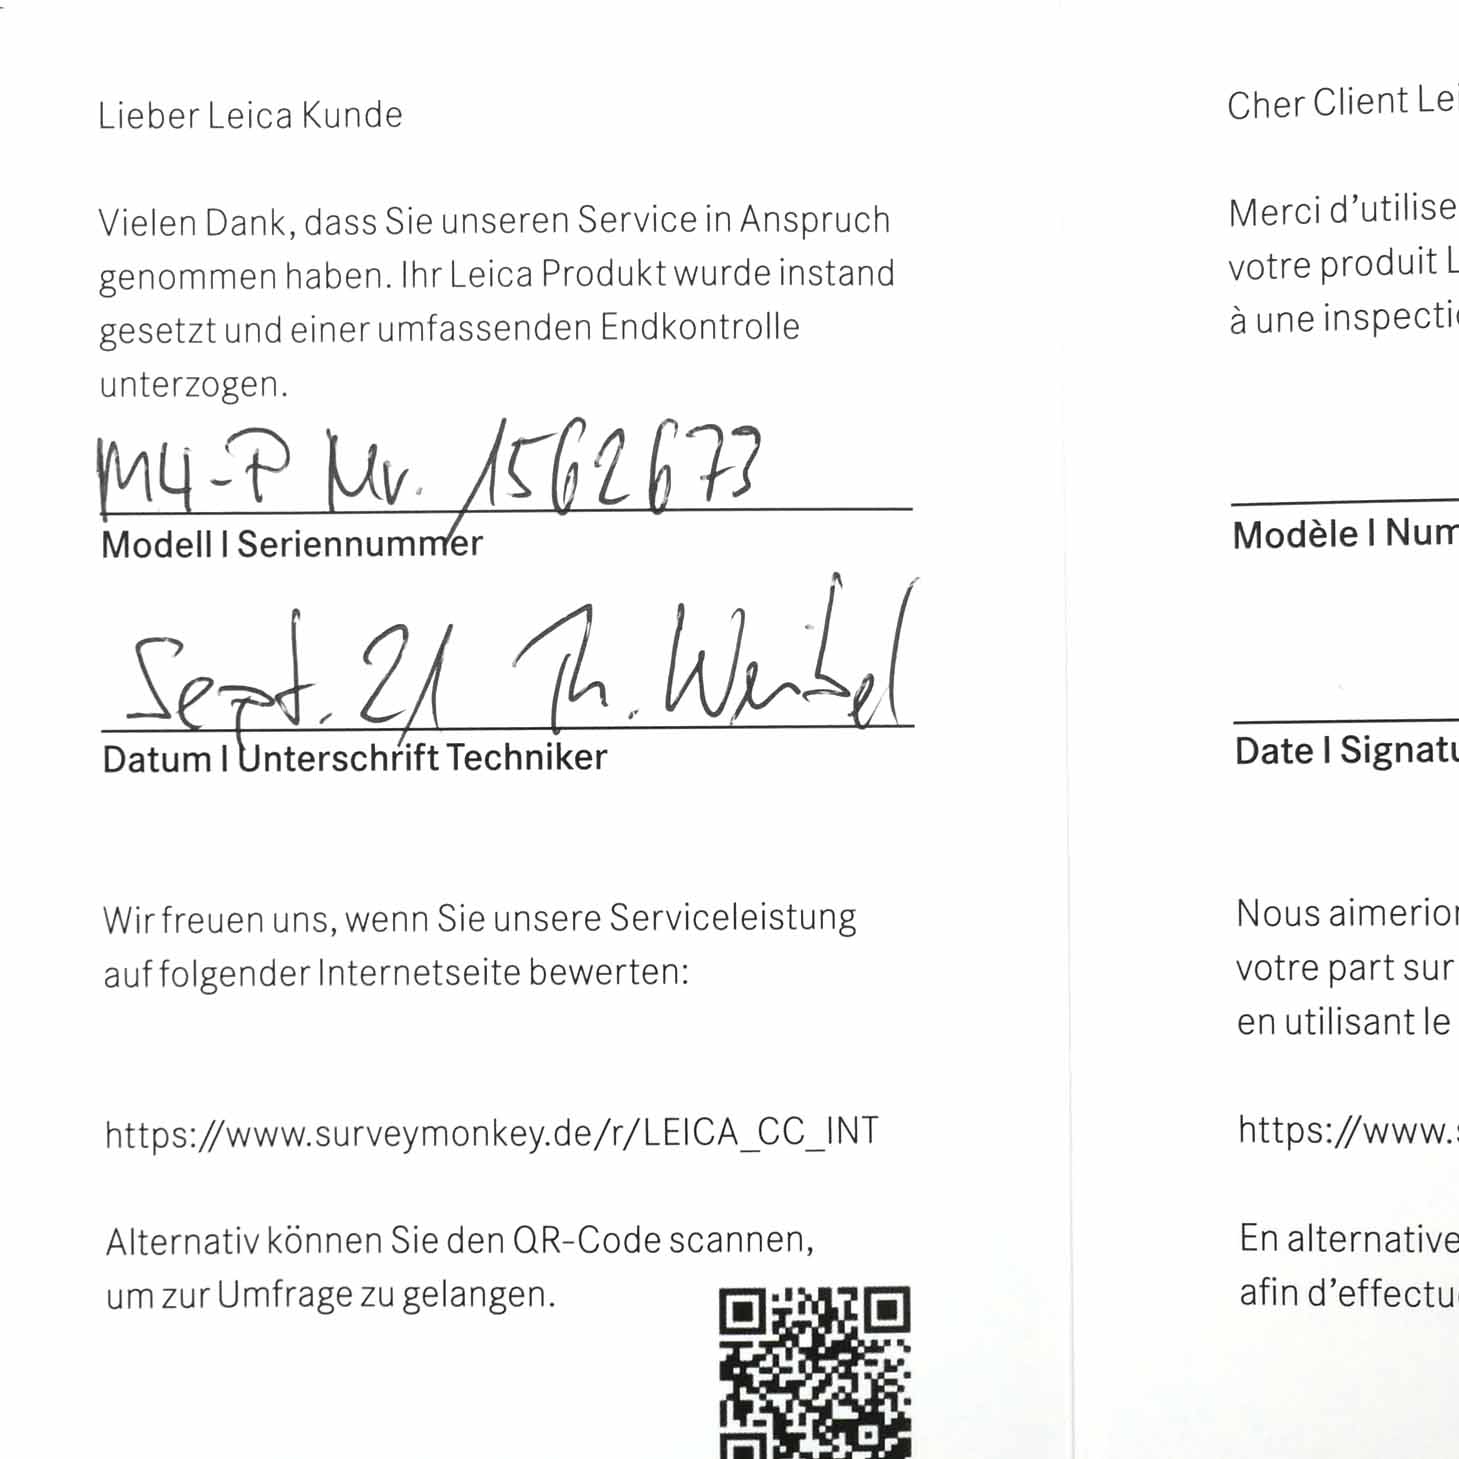 Lieber Leica Kunde
Vielen Dank, dass Sie unseren Service in Anspruch
genommen haben. Ihr Leica Produkt wurde instand
gesetzt und einer umfassenden Endkontrolle
unterzogen.
M4-P Nr. 1562673
Modell | Seriennummer
Sept. 21 Th. Weibel
Datum | Unterschrift Techniker
Wir freuen uns, wenn Sie unsere Serviceleistung
auf folgender Internetseite bewerten:
https://www.surveymonkey.de/r/LEICA_CC_INT
Alternativ können Sie den QR-Code scannen,
um zur Umfrage zu gelangen.
Cher Client Lei
Merci d'utilise
votre produit L
à une inspecti
Modèle | Num
Date | Signatu
Nous aimerion
votre part sur
en utilisant le
https://www.s
En alternative
afin d'effectu